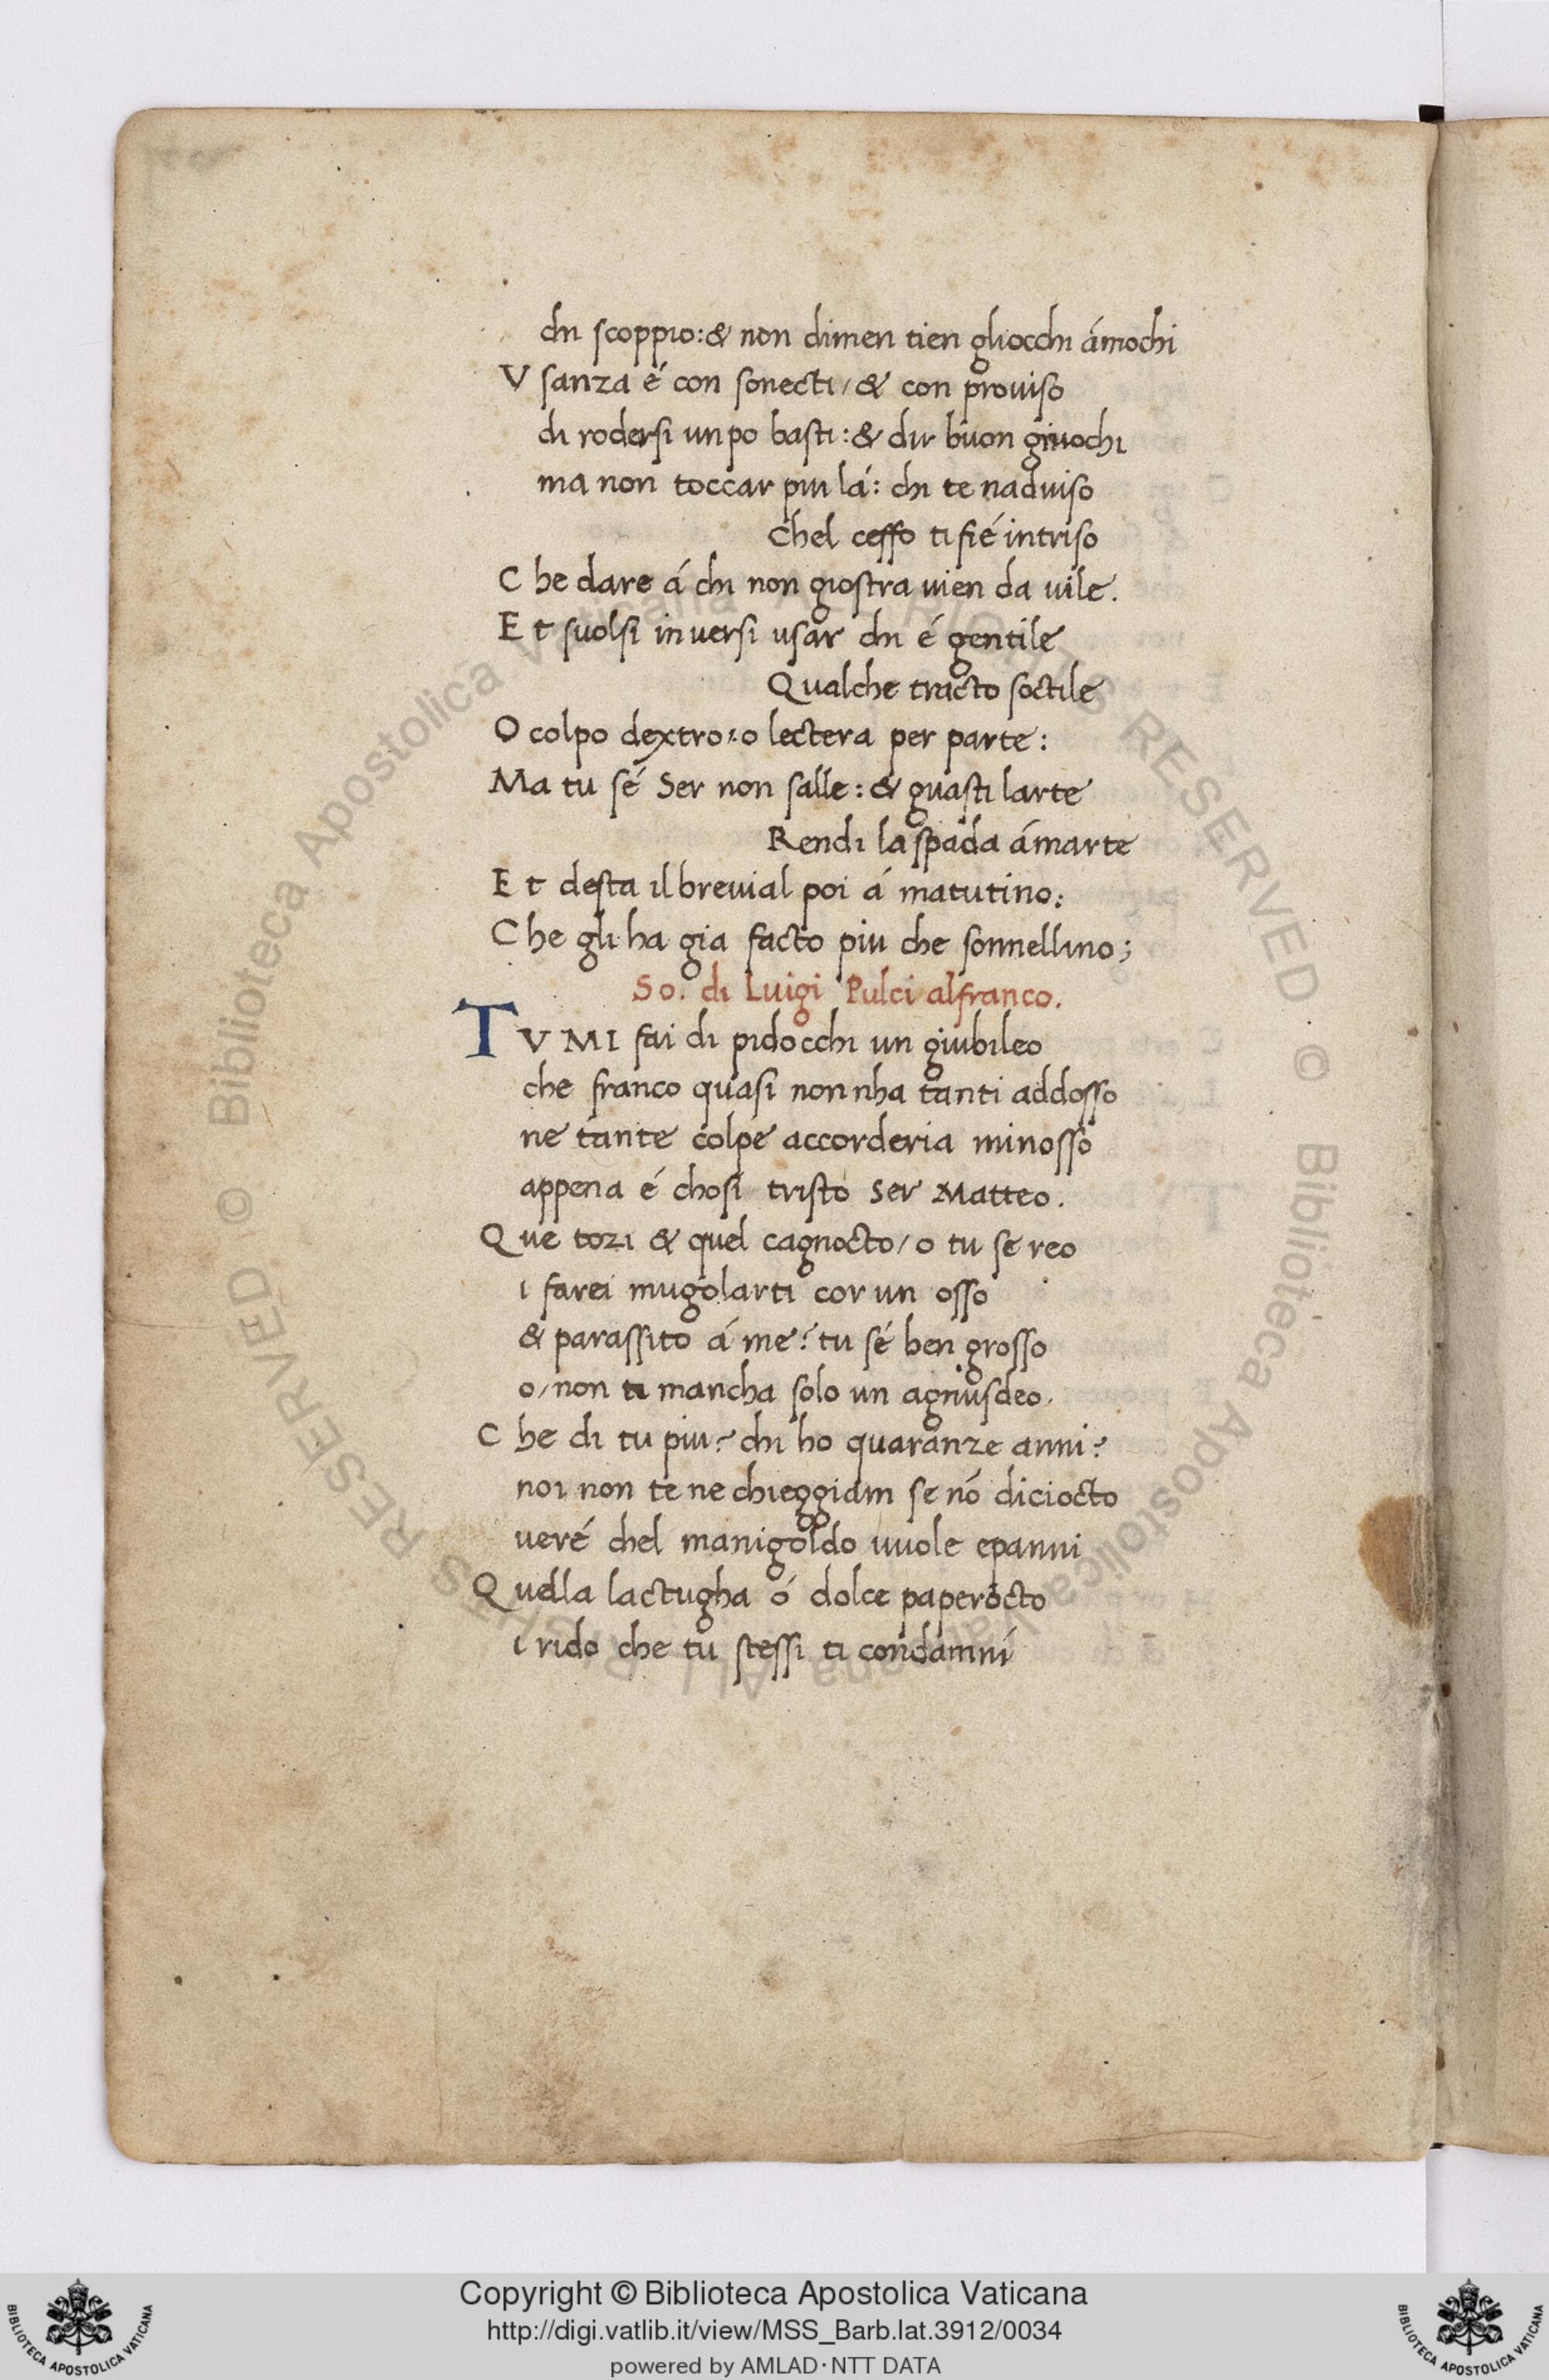 chi scoppio: & non dimen tien gliocchi ámochi
V sanza é con sonecti / & con prouiso
di rodersi unpo basti: & dir buon giuochi
ma non toccar piu lá: chi te naduiso
Chel ceffo ti fié intriso
C he dare á chi non giostra uien da uile.
E t suolsi inuersi usar chi é gentile
Qualche tracto soctile
O colpo dextro: o lectera per parte:
Ma tu sé Ser non salle: & guasti larte
Rendi la spada ámarte
E t desta il breuial poi á matutino:
C he gli ha gia facto piu che sonnellino;
So. di Luigi Pulci alfranco.
TV MI fai di pidocchi un giubileo
che franco quasi non nha tanti addosso
ne tante colpe accorderia minosso
appena é chosi tristo Ser Matteo.
Q ue tozi & quel cagnocto / o tu se reo
i farei mugolarti cor un osso
& parassito á me? tu sé ben grosso
o / non ti mancha solo un agnusdeo.
C he di tu piu? chi ho quaranze anni?
noi non te ne chieggiam se nó diciocto
ueré chel manigoldo uuole epanni
Q uella lactugha ó dolce paperocto
i rido che tu stessi ti condamni
Biblioteca Apostolica Vaticana ALL RIGHTS RESERVED © Biblioteca Apostolica Vaticana ALL RIGHTS RESERVED ©
Copyright © Biblioteca Apostolica Vaticana
http://digi.vatlib.it/view/MSS_Barb.lat.3912/0034
powered by AMLAD·NTT DATA
BIBLIOTECA APOSTOLICA VATICANA
BIBLIOTECA APOSTOLICA VATICANA